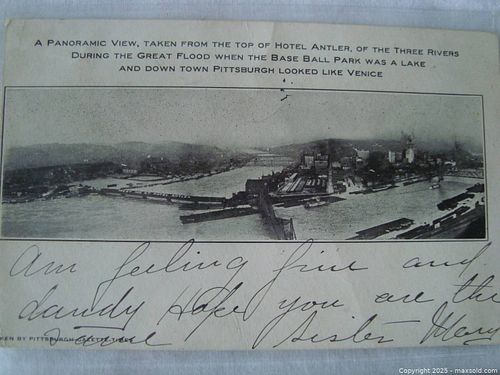 A PANORAMIC VIEW, TAKEN FROM THE TOP OF HOTEL ANTLER, OF THE THREE RIVERS
DURING THE GREAT FLOOD WHEN THE BASE BALL PARK WAS A LAKE
AND DOWN TOWN PITTSBURGH LOOKED LIKE VENICE
Am feeling fine and
dandy Hope you are the
same Sister Mary
KEN BY PITTSBURGH GAZETTE TIMES
Copyright © 2025 - maxsold.com